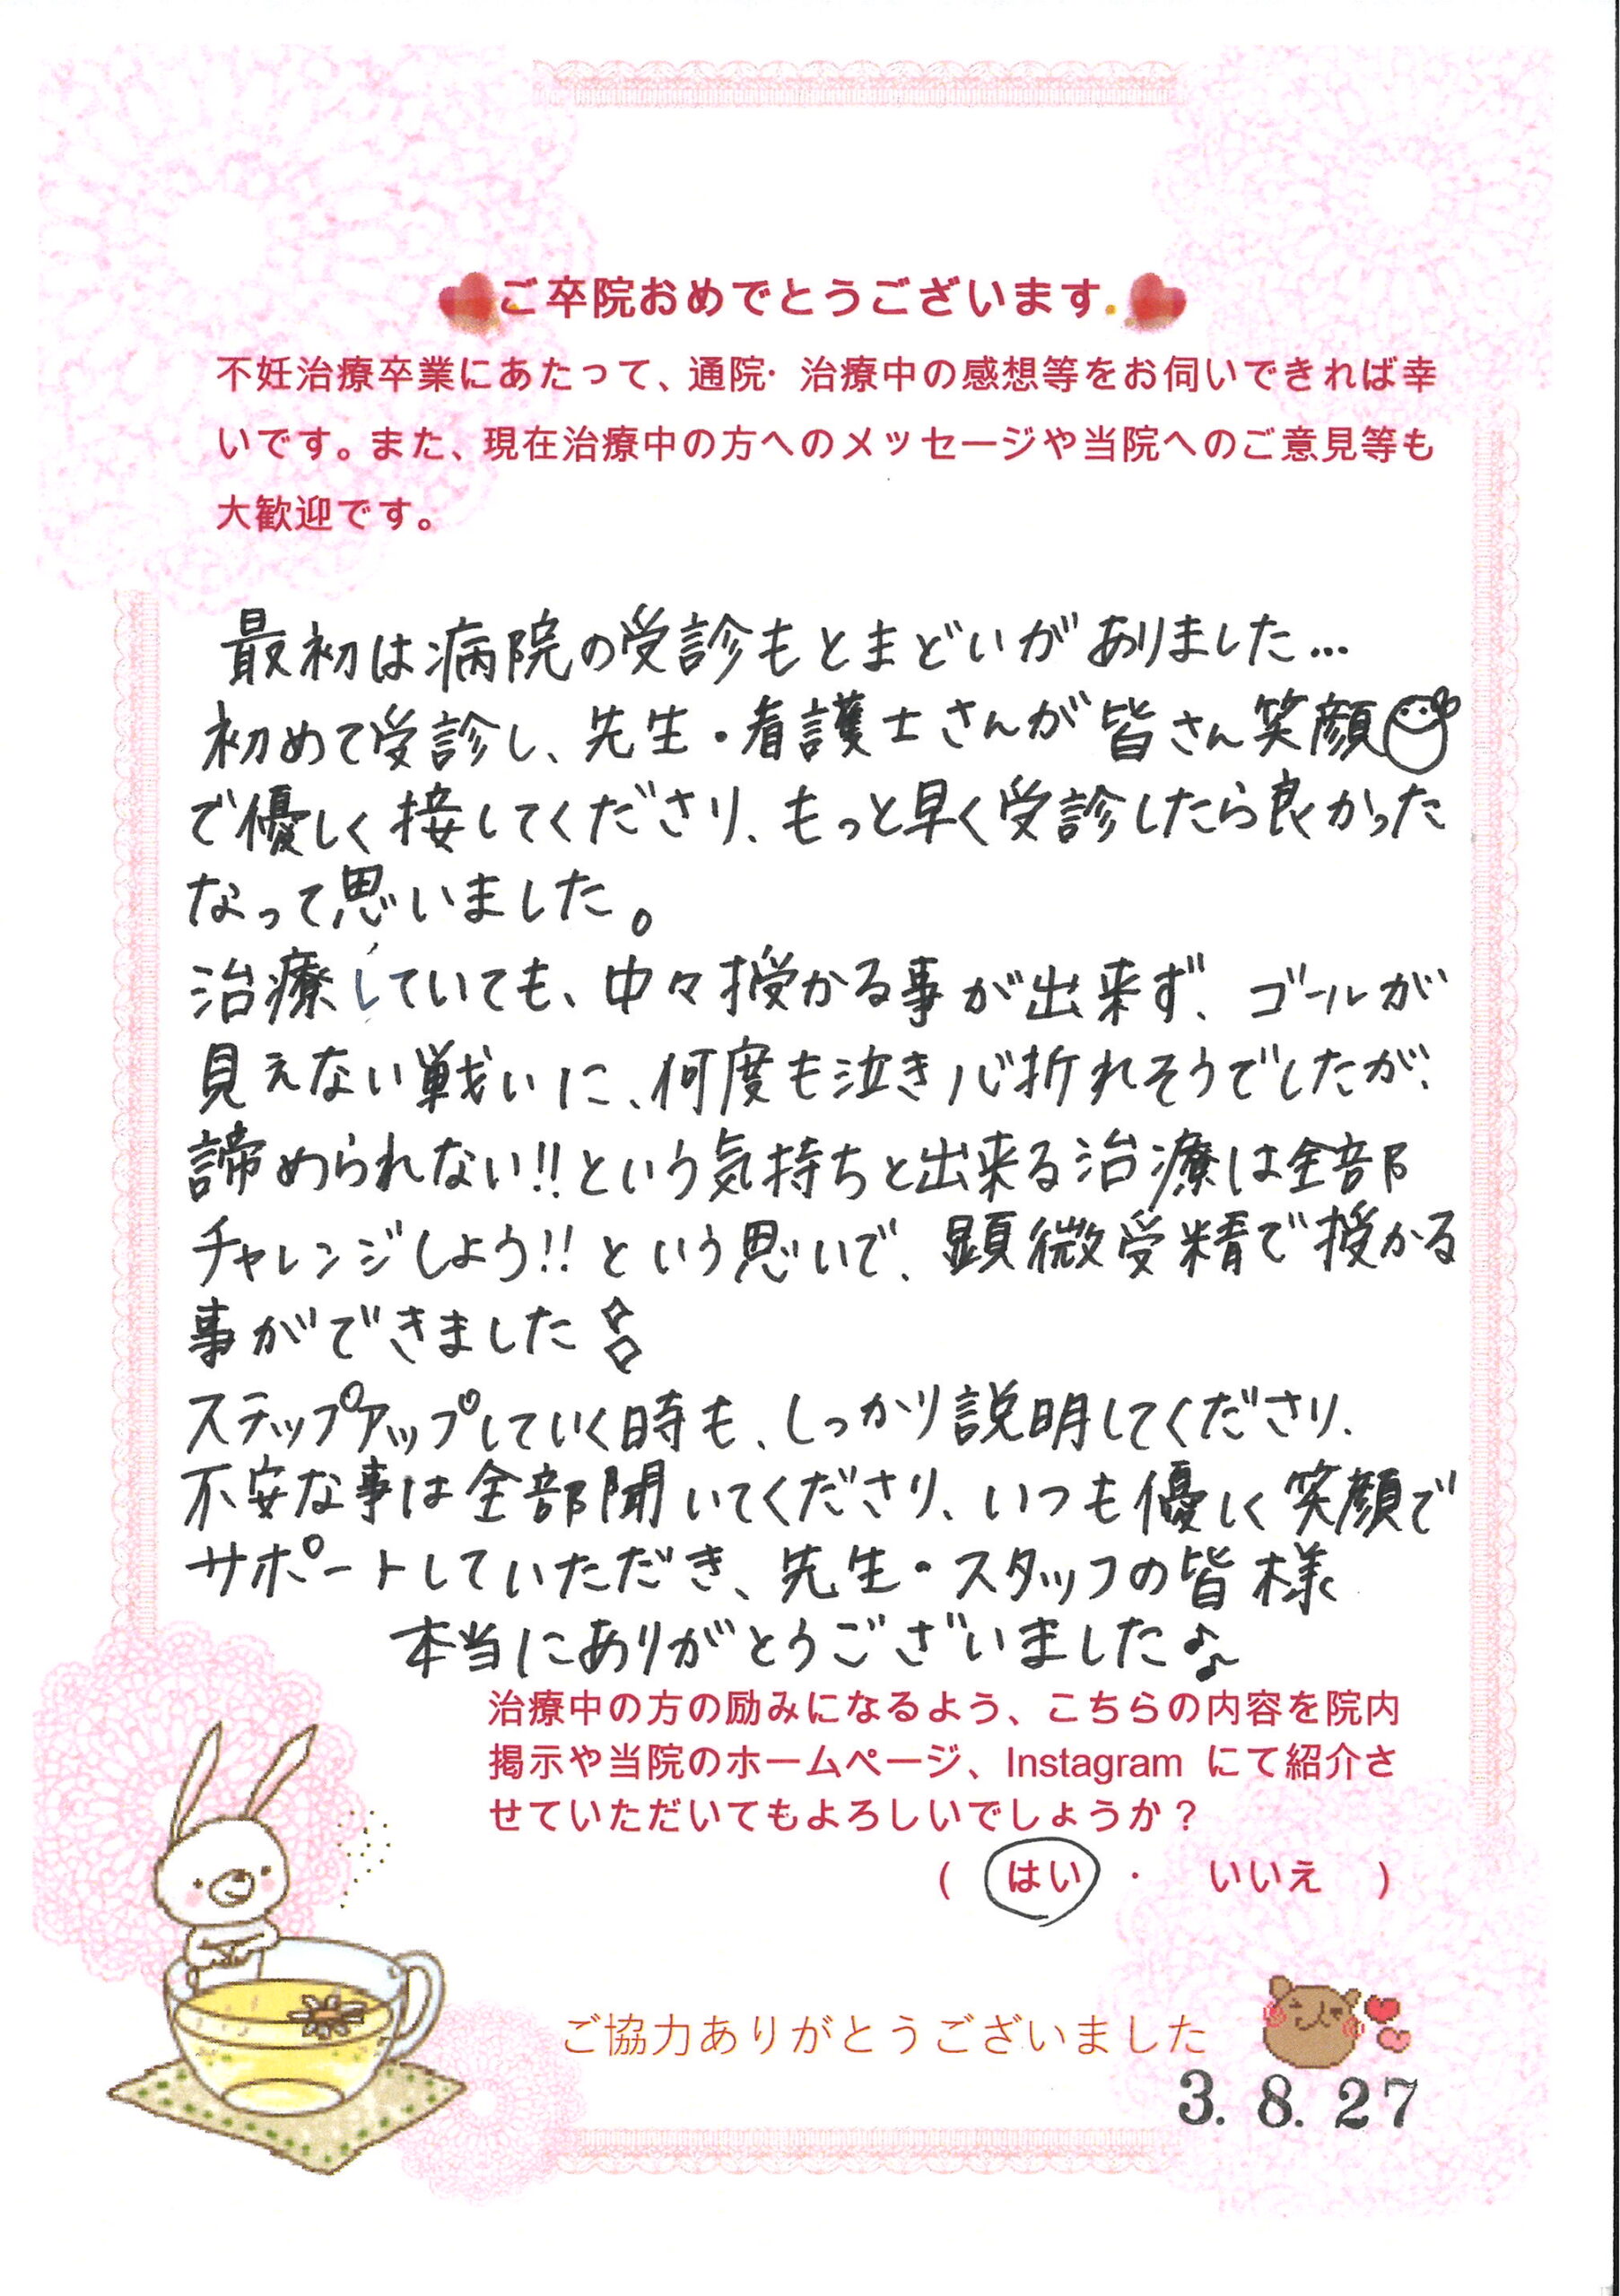 ご卒院おめでとうございます.
不妊治療卒業にあたって、通院・治療中の感想等をお伺いできれば幸
いです。また、現在治療中の方へのメッセージや当院へのご意見等も
大歓迎です。
最初は病院の受診もとまどいがありました…
初めて受診し、先生・看護士さんが皆さん笑顔
で優しく接してくださり、もっと早く受診したら良かった
なって思いました。
治療していても、中々授かる事が出来ず、ゴールが
見えない戦いに、何度も泣き心折れそうでしたが、
諦められない!!という気持ちと出来る治療は全部
チャレンジしよう!!という思いで、顕微受精で授かる
事ができました
ステップアップしていく時も、しっかり説明してくださり、
不安な事は全部聞いてくださり、いつも優しく笑顔で
サポートしていただき、先生・スタッフの皆様
本当にありがとうございました♪
治療中の方の励みになるよう、こちらの内容を院内
掲示や当院のホームページ、Instagram にて紹介さ
せていただいてもよろしいでしょうか？
( はい ・ いいえ )
ご協力ありがとうございました
3. 8. 27